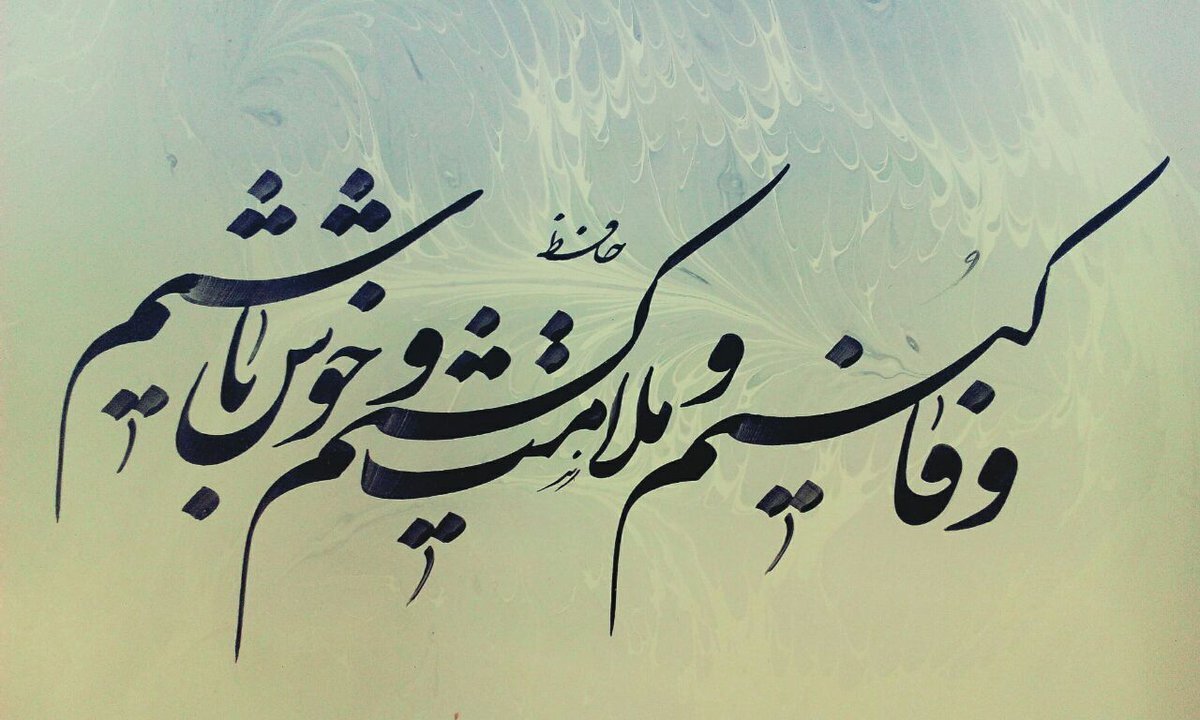 وفا کنیم و ملامت کشیم و خوش باشیم
حافظ